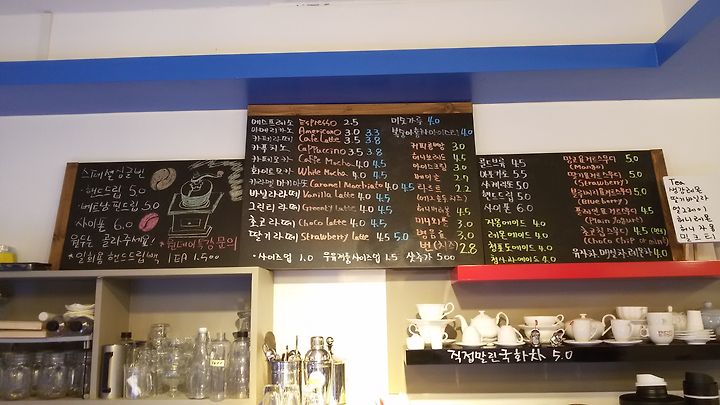 스페셜싱글빈
·핸드드립 5.0
·베트남 핀드립 5.0
사이폰 6.0
원두는 골라주세요!
*원데이특강문의
*일회용 핸드드립백
1EA 1.500
에스프레소 Espresso 2.5
아메리카노 Americano 3.0 3.3
카페라떼 Cafe Latte 3.5 3.8
카푸치노 Cappuccino 3.5 3.8
카페모카 Caffe Mocha 4.0 4.5
화이트모카 White Mocha 4.0 4.5
카라멜 마키아또 Caramel Macchiato 4.0 4.5
바닐라라떼 Vanilla Latte 4.0 4.5
그린티라떼 Greenty Latte 4.0 4.5
초코라떼 Choco latte 4.0 4.5
딸기라떼 Strawberry latte 4.5 5.0
·사이즈업 1.0 우유거품사이즈업 1.5 샷추가 5.00
미숫가루 4.0
복숭아홍차(아이스티) 4.0
커피콩빵 3.0
허니브레드 4.5
아이스크림 3.0
베이글 2.7
타르트 2.2
3.0
허니 4.5
3.0
3.0
번(치즈) 2.8
콜드브루 4.5
더치 5.0
사케라또 5.0
핸드드립 5.0
사이폰 6.0
자몽에이드 4.0
레몬에이드 4.0
청포도에이드 4.0
4.0
망고요거스무디 5.0
(Mango)
딸기요거스무디 5.0
(Strawberry)
블루베리요거스무디 5.0
(Blueberry)
플레인요거스무디 4.5
(Plain Yogurt)
초코칩스무디 5.0
(Choco Chip or mint)
유자차,매실차,레몬차 4.0
Tea
생강레몬
딸기바닐라
얼그레이
허니레몬
허니자몽
밀크티
직접말린국화차 5.0